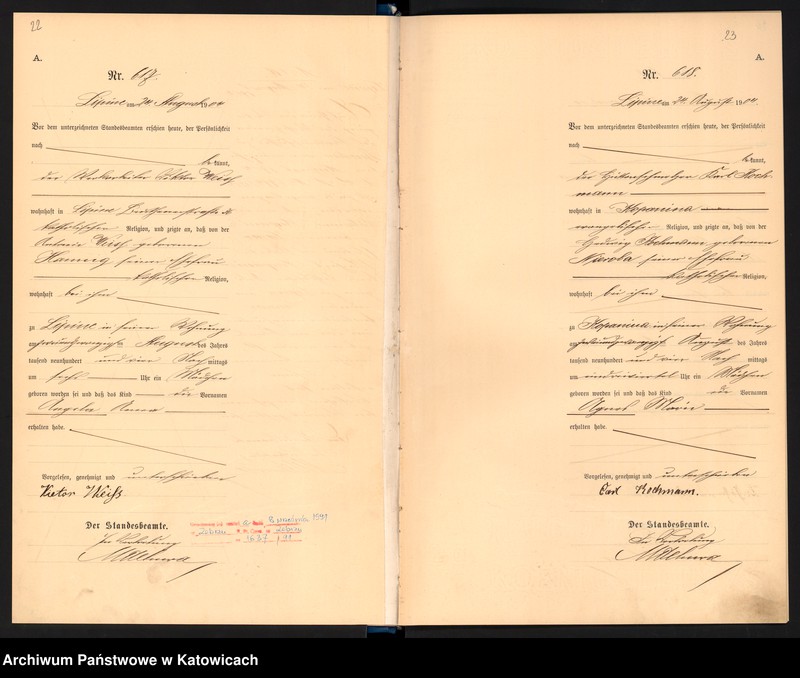 22
A.
Nr. 617.
Lipine am 24 August 1904
Vor dem unterzeichneten Standesbeamten erschien heute, der Persönlichkeit
nach
be kannt,
der Viktor Weiß
wohnhaft in Lipine
katholischer Religion, und zeigte an, daß von der
Weiß geborenen
seiner Ehefrau
katholischer Religion,
wohnhaft bei ihm
zu Lipine in seiner Wohnung
am August des Jahres
tausend neunhundert und vier Nach mittags
um sechs Uhr ein Mädchen
geboren worden sei und daß das Kind die Vornamen
Angela Anna
erhalten habe.
Vorgelesen, genehmigt und unterschrieben
Victor Weiß
Der Standesbeamte.
In Vertretung
1637
23
A.
Nr. 618.
Lipine am 24. August 1904.
Vor dem unterzeichneten Standesbeamten erschien heute, der Persönlichkeit
nach
be kannt,
der Karl Koch-
mann
wohnhaft in Kopanina
evangelischer Religion, und zeigte an, daß von der
Hedwig Kochmann geborenen
seiner Ehefrau
katholischer Religion,
wohnhaft bei ihm
zu Kopanina in seiner Wohnung
am August des Jahres
tausend neunhundert und vier Nach mittags
um Uhr ein Mädchen
geboren worden sei und daß das Kind die Vornamen
Agnes Marie
erhalten habe.
Vorgelesen, genehmigt und unterschrieben
Carl Kochmann.
Der Standesbeamte.
In Vertretung
Archiwum Państwowe w Katowicach